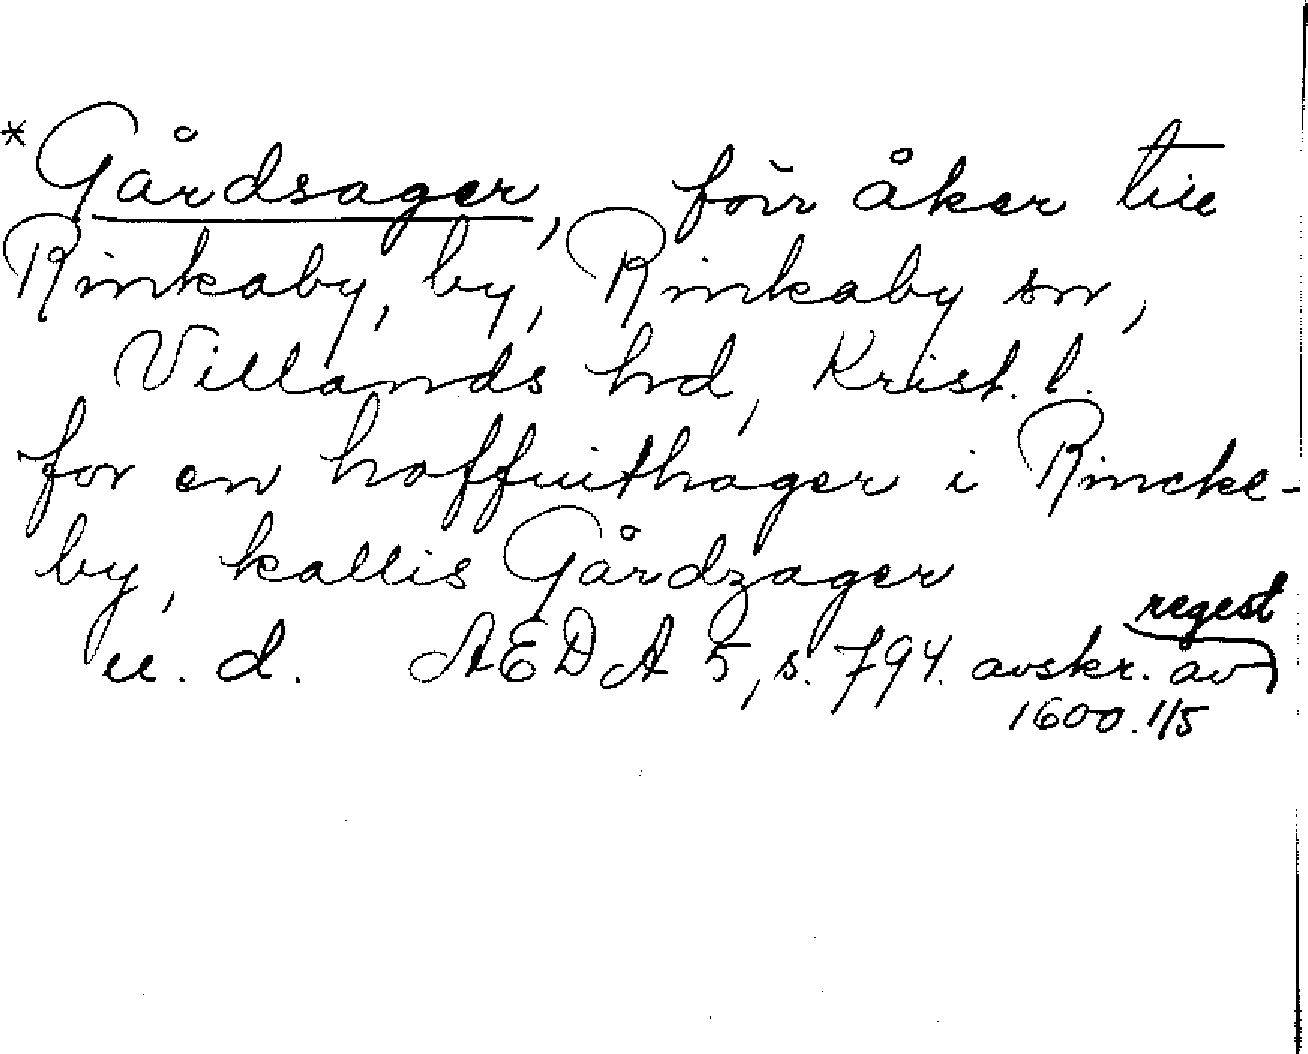 *Gårdsager, förr åker till
Rinkaby, by, Rinkaby sn,
Villands hd, Krist. l.
for en hoffuithager i Rincke-
by, kallis Gårdzager
u. d. AEDA 5, s. 794. avskr. av regest
1600. 1/5